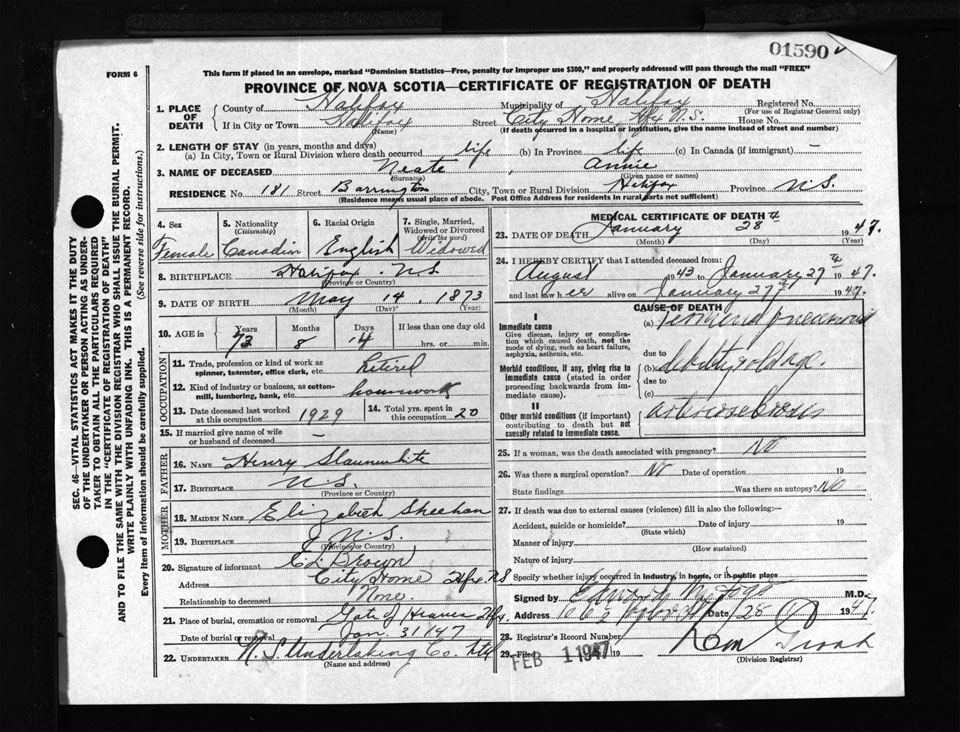 01590
FORM 6
This form if placed in an envelope, marked "Dominion Statistics—Free, penalty for improper use $300," and properly addressed will pass through the mail "FREE"
PROVINCE OF NOVA SCOTIA—CERTIFICATE OF REGISTRATION OF DEATH
1. PLACE OF DEATH
County of Halifax Municipality of Halifax Registered No.
(For use of Registrar General only)
If in City or Town Halifax Street City Home, Hfx N.S. House No.
(Name) (If death occurred in a hospital or institution, give the name instead of street and number)
2. LENGTH OF STAY (in years, months and days)
(a) In City, Town or Rural Division where death occurred life (b) In Province life (c) In Canada (if immigrant) —
3. NAME OF DECEASED Neate, Annie
(Surname) (Given name or names)
RESIDENCE No. 181 Street Barrington City, Town or Rural Division Halifax Province N.S.
(Residence means usual place of abode. Post Office Address for residents in rural parts not sufficient)
4. Sex
Female
5. Nationality
(Citizenship)
Canadin
6. Racial Origin
English
7. Single, Married, Widowed or Divorced
(Write the word)
Widowed
8. BIRTHPLACE Halifax. N.S
(Province or Country)
9. DATE OF BIRTH May 14, 1873
(Month) (Day) (Year)
10. AGE in
Years Months Days If less than one day old
73 8 14 hrs. or min.
OCCUPATION
11. Trade, profession or kind of work as spinner, teamster, office clerk, etc. retired
12. Kind of industry or business, as cotton-mill, lumbering, bank, etc. housework
13. Date deceased last worked at this occupation 1929
14. Total yrs. spent in this occupation 20
15. If married give name of wife or husband of deceased —
FATHER
16. NAME Henry Slaunwhite
17. BIRTHPLACE N.S.
(Province or Country)
MOTHER
18. MAIDEN NAME Elizabeth Sheehan
19. BIRTHPLACE N.S.
(Province or Country)
20. Signature of informant Brown
Address City Home Hfx NS
Relationship to deceased None.
21. Place of burial, cremation or removal Gate of Heaven Hfx.
Date of burial or removal Jan. 31/47
22. UNDERTAKER N.S. Undertaking Co. Ltd
(Name and address)
MEDICAL CERTIFICATE OF DEATH
23. DATE OF DEATH January 28th 1947.
(Month) (Day) (Year)
24. I HEREBY CERTIFY that I attended deceased from:
August 1943 to January 27th 1947.
and last saw her alive on January 27th 1947.
CAUSE OF DEATH
I
Immediate cause
Give disease, injury or complication which caused death, not the mode of dying, such as heart failure, asphyxia, asthenia, etc.
(a) Terminal pneumonia
due to
Morbid conditions, if any, giving rise to immediate cause (stated in order proceeding backwards from immediate cause).
(b) debility old age.
due to
(c)
II
Other morbid conditions (if important) contributing to death but not causally related to immediate cause.
arteriosclerosis
25. If a woman, was the death associated with pregnancy? No
26. Was there a surgical operation? No Date of operation 19
State findings Was there an autopsy? No
27. If death was due to external causes (violence) fill in also the following:—
Accident, suicide or homicide? Date of injury 19
(State which)
Manner of injury
(How sustained)
Nature of injury
Specify whether injury occurred in industry, in home, or in public place
Signed by M.D.
Address Date 28 1947.
28. Registrar's Record Number
29. Filed FEB 1 1947 19
(Division Registrar)
SEC. 46—VITAL STATISTICS ACT MAKES IT THE DUTY
OF THE UNDERTAKER OR PERSON ACTING AS UNDER-
TAKER TO OBTAIN ALL THE PARTICULARS REQUIRED
IN THE "CERTIFICATE OF REGISTRATION OF DEATH"
AND TO FILE THE SAME WITH THE DIVISION REGISTRAR WHO SHALL ISSUE THE BURIAL PERMIT.
WRITE PLAINLY WITH UNFADING INK. THIS IS A PERMANENT RECORD.
Every item of information should be carefully supplied. (See reverse side for instructions.)